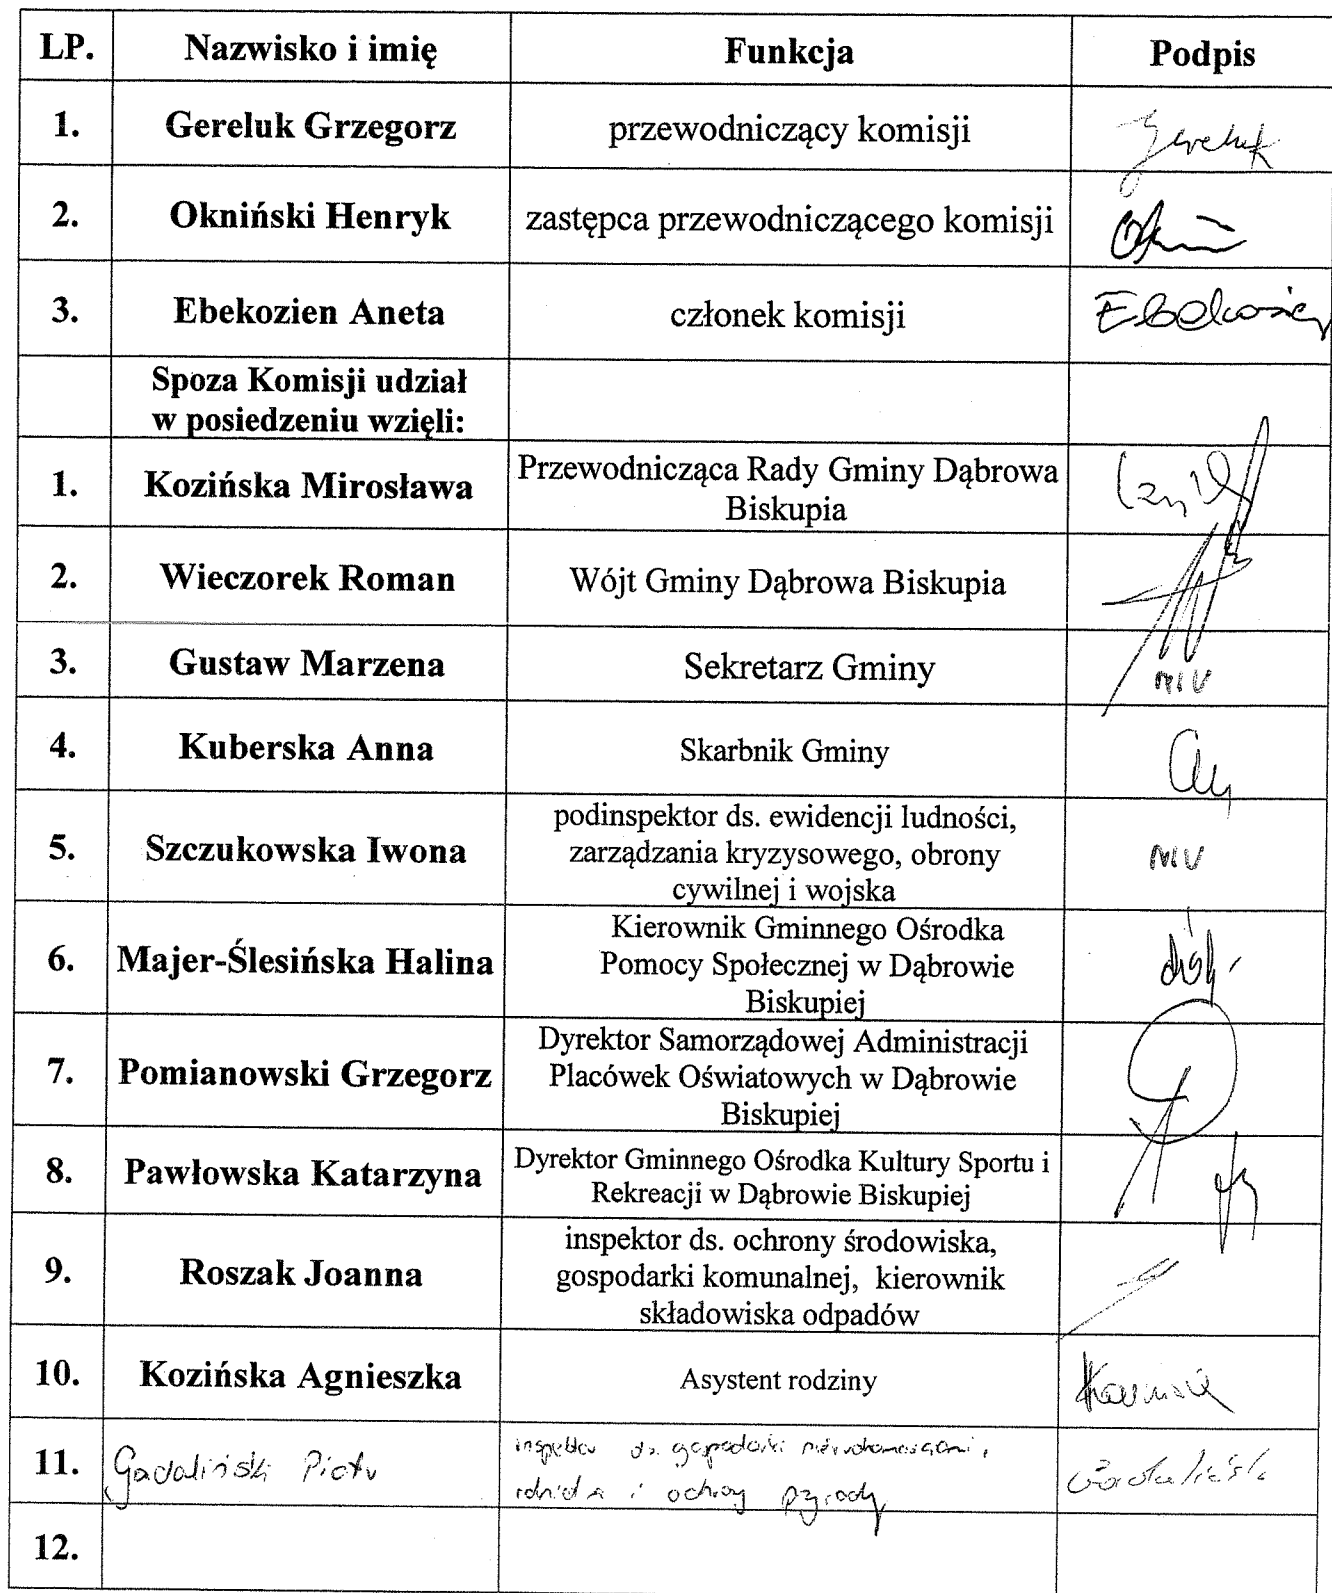 LP. Nazwisko i imię Funkcja Podpis
1. Gereluk Grzegorz przewodniczący komisji Gereluk
2. Okniński Henryk zastępca przewodniczącego komisji
3. Ebekozien Aneta członek komisji Ebekozien
Spoza Komisji udział
w posiedzeniu wzięli:
1. Kozińska Mirosława Przewodnicząca Rady Gminy Dąbrowa
Biskupia
2. Wieczorek Roman Wójt Gminy Dąbrowa Biskupia
3. Gustaw Marzena Sekretarz Gminy
4. Kuberska Anna Skarbnik Gminy
podinspektor ds. ewidencji ludności,
5. Szczukowska Iwona zarządzania kryzysowego, obrony
cywilnej i wojska
Kierownik Gminnego Ośrodka
6. Majer-Ślesińska Halina Pomocy Społecznej w Dąbrowie
Biskupiej
Dyrektor Samorządowej Administracji
7. Pomianowski Grzegorz Placówek Oświatowych w Dąbrowie
Biskupiej
8. Pawłowska Katarzyna Dyrektor Gminnego Ośrodka Kultury Sportu i
Rekreacji w Dąbrowie Biskupiej
inspektor ds. ochrony środowiska,
9. Roszak Joanna gospodarki komunalnej, kierownik
składowiska odpadów
10. Kozińska Agnieszka Asystent rodziny
11. Gadaliński Piotr inspektor ds. gospodarki nieruchomościami,
i ochrony przyrody
12.